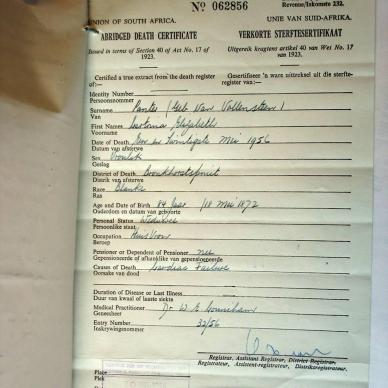 Nº 062856
Revenue/Inkomste 232.
UNION OF SOUTH AFRICA. UNIE VAN SUID-AFRIKA.
ABRIDGED DEATH CERTIFICATE VERKORTE STERFTESERTIFIKAAT
Based in terms of Section 40 of Act No. 17 of 1923. Uitgereik kragtens artikel 40 van Wet No. 17 van 1923.
Certified a true extract from the death register of:— Gesertifiseer 'n ware uittreksel uit die sterfteregister van:—
Identity Number
Persoonsnommer
Surname (Geb Van
Van
First Names Elizabeth
Voorname
Date of Death Mei 1956
Datum van afsterwe
Sex Vroulik
Geslag
District of Death Bronkhorstspruit
Distrik van afsterwe
Race Blanke
Ras
Age and Date of Birth 84 Jaar 18 Mei 1872
Ouderdom en datum van geboorte
Personal Status Weduwee
Persoonlike staat
Occupation Huisvrou
Beroep
Pensioner or Dependent of Pensioner nee
Gepensioeneerde of afhanklike van gepensioeneerde
Causes of Death Cardiac Failure
Oorsake van dood
Duration of Disease or Last Illness
Duur van kwaal of laaste siekte
Medical Practitioner Dr. W. E.
Geneesheer
Entry Number 32/56
Inskrywingsnommer
Registrar, Assistant Registrar, District Registrar.
Registrateur, Assistent-registrateur, Distriksregistrateur.
Place
Plek